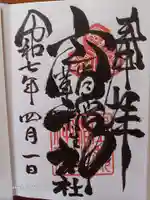 奉拝
高諸神社
令和七年 四月一日